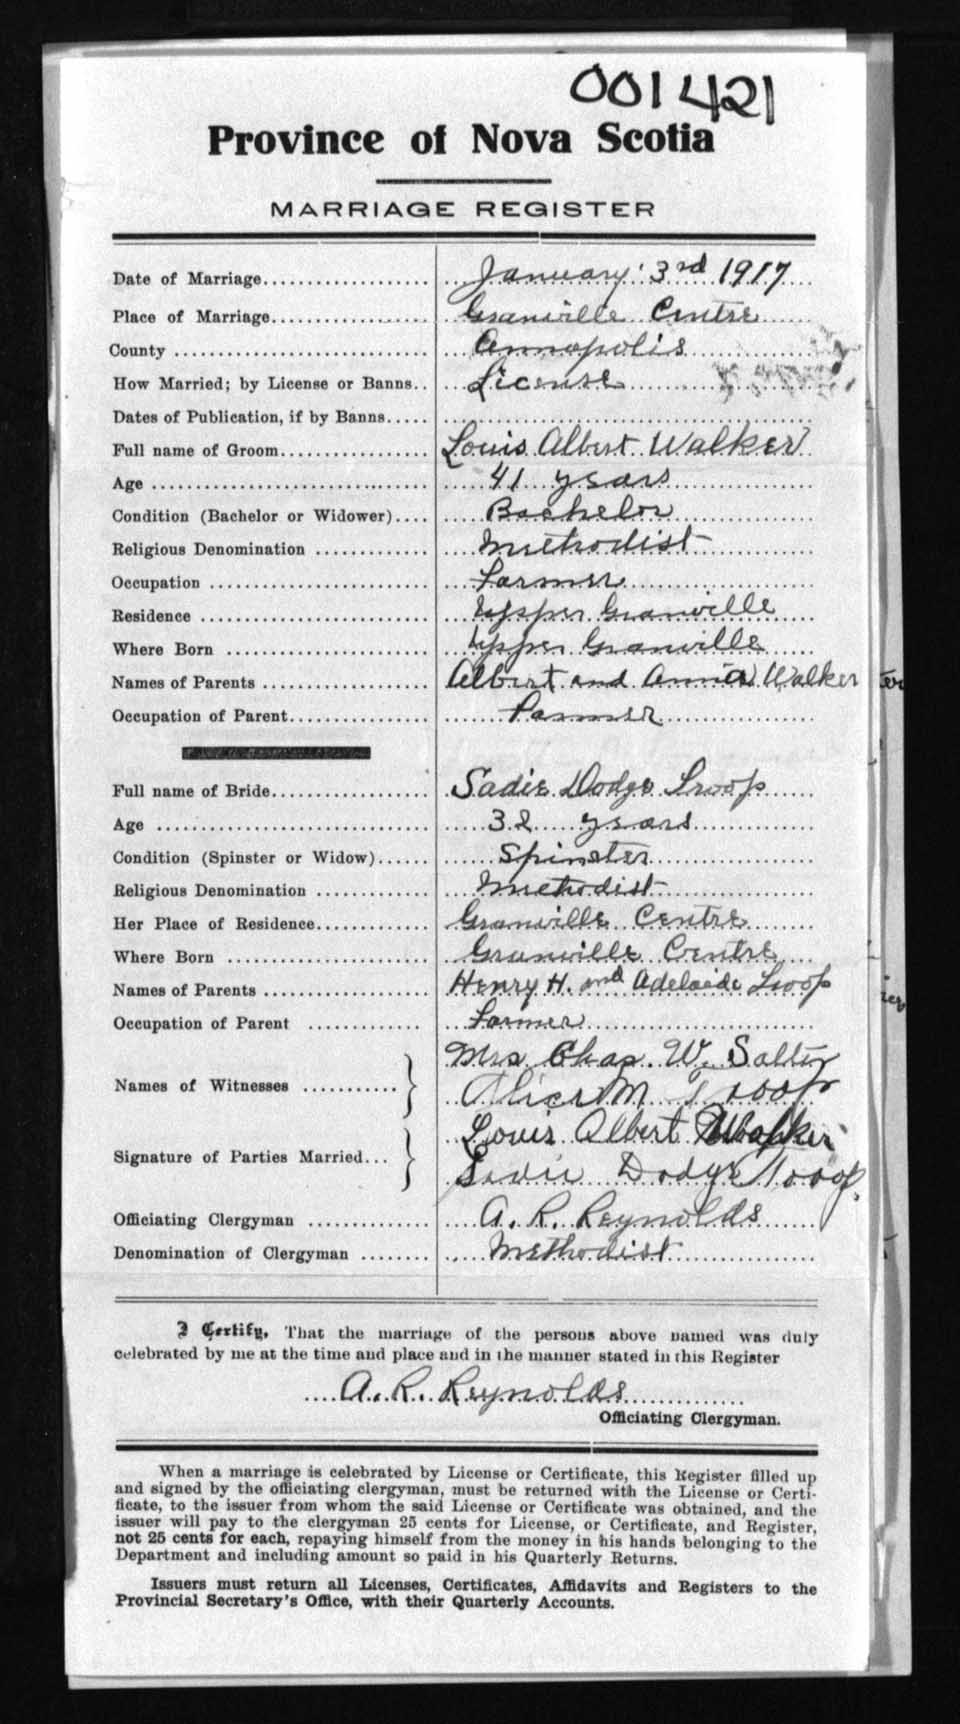 001421
Province of Nova Scotia
MARRIAGE REGISTER
Date of Marriage.................... January 3rd 1917
Place of Marriage................... Granville Centre
County .............................. Annapolis
How Married; by License or Banns.. License
Dates of Publication, if by Banns.....
Full name of Groom.................. Louis Albert Walker
Age .................................. 41 years
Condition (Bachelor or Widower).... Bachelor
Religious Denomination ............. Methodist
Occupation .......................... Farmer
Residence ........................... Upper Granville
Where Born ........................ Upper Granville
Names of Parents ................... Albert and Annie Walker
Occupation of Parent................ Farmer
Full name of Bride................... Sadie Dodge Troop
Age ................................. 32 years
Condition (Spinster or Widow)...... Spinster
Religious Denomination ............. Methodist
Her Place of Residence............. Granville Centre
Where Born ........................ Granville Centre
Names of Parents ................... Henry H. and Adelaide Troop
Occupation of Parent ............. Farmer
Mrs Chas. W. Salter
Names of Witnesses ........... Alice M Troop
Louis Albert Walker
Signature of Parties Married... Sadie Dodge Troop.
Officiating Clergyman .............. A. R. Reynolds
Denomination of Clergyman ........ Methodist
I Certify, That the marriage of the persons above named was duly
celebrated by me at the time and place and in the manner stated in this Register
A. R. Reynolds
Officiating Clergyman.
When a marriage is celebrated by License or Certificate, this Register filled up
and signed by the officiating clergyman, must be returned with the License or Certi-
ficate, to the issuer from whom the said License or Certificate was obtained, and the
issuer will pay to the clergyman 25 cents for License, or Certificate, and Register,
not 25 cents for each, repaying himself from the money in his hands belonging to the
Department and including amount so paid in his Quarterly Returns.
Issuers must return all Licenses, Certificates, Affidavits and Registers to the
Provincial Secretary's Office, with their Quarterly Accounts.